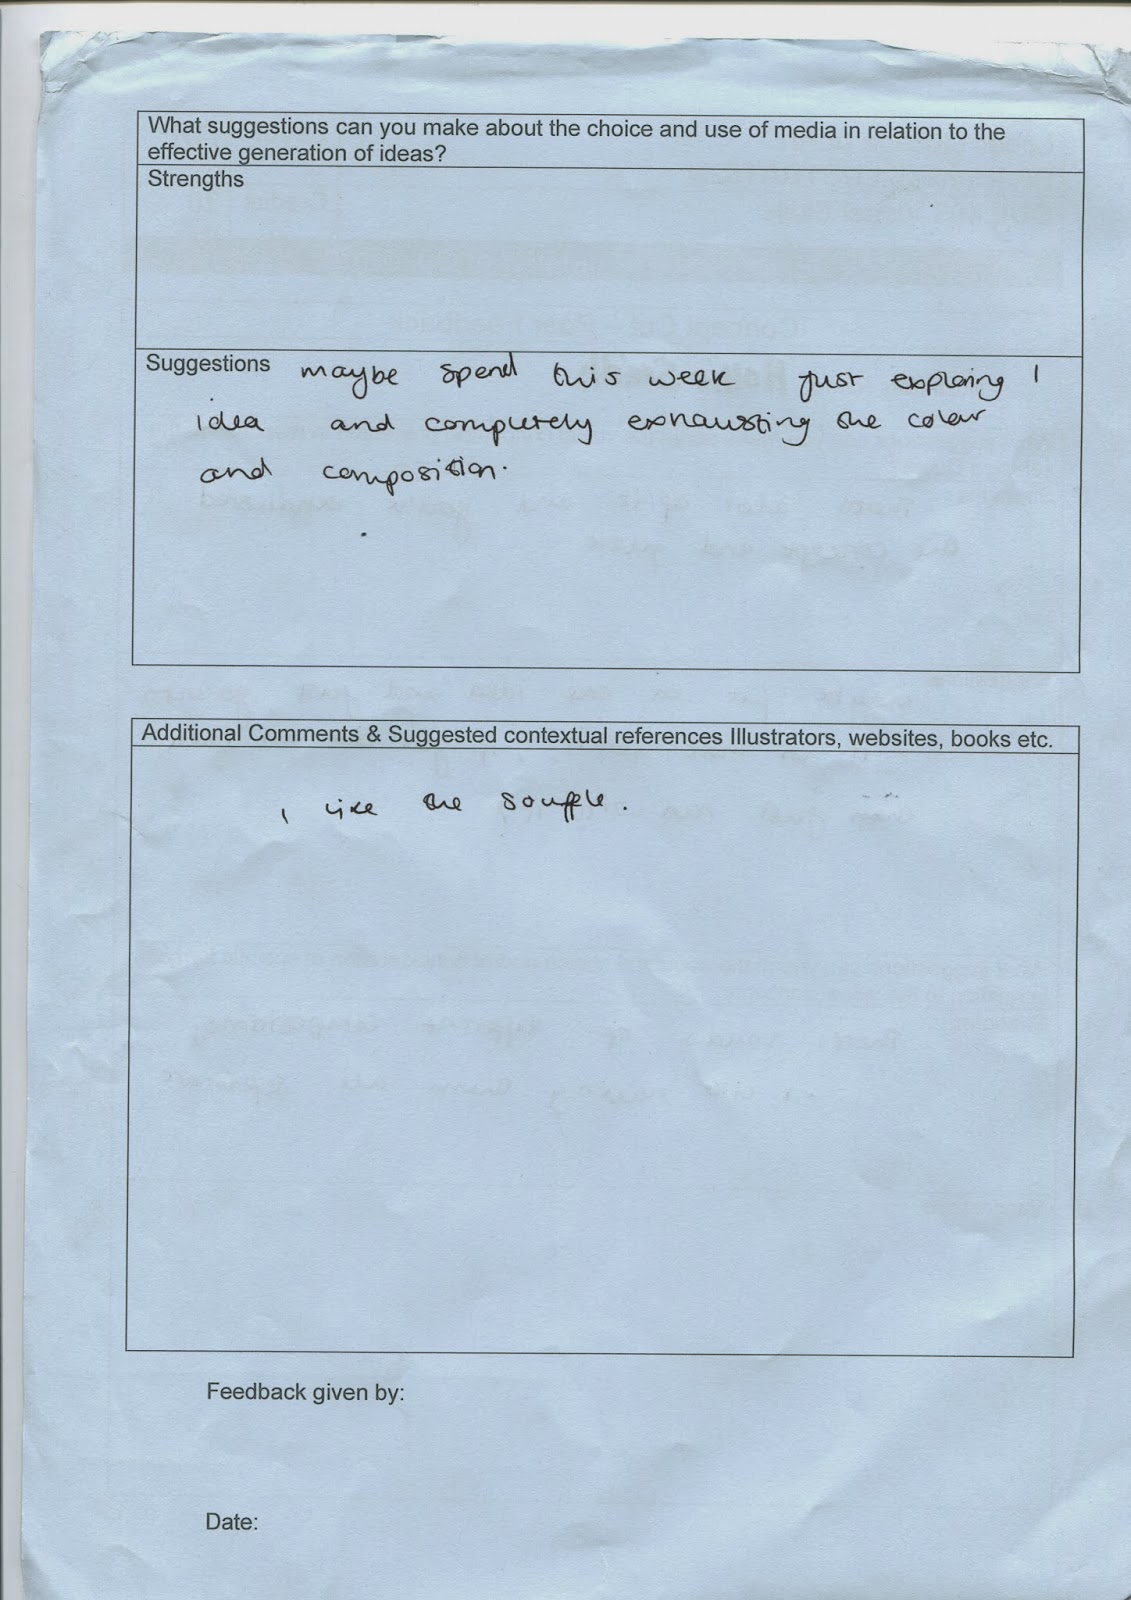 What suggestions can you make about the choice and use of media in relation to the
effective generation of ideas?
Strengths
Suggestions maybe spend this week just exploring 1
idea and completely exhausting the colour
and composition.
Additional Comments & Suggested contextual references Illustrators, websites, books etc.
I like the souffle.
Feedback given by:
Date: